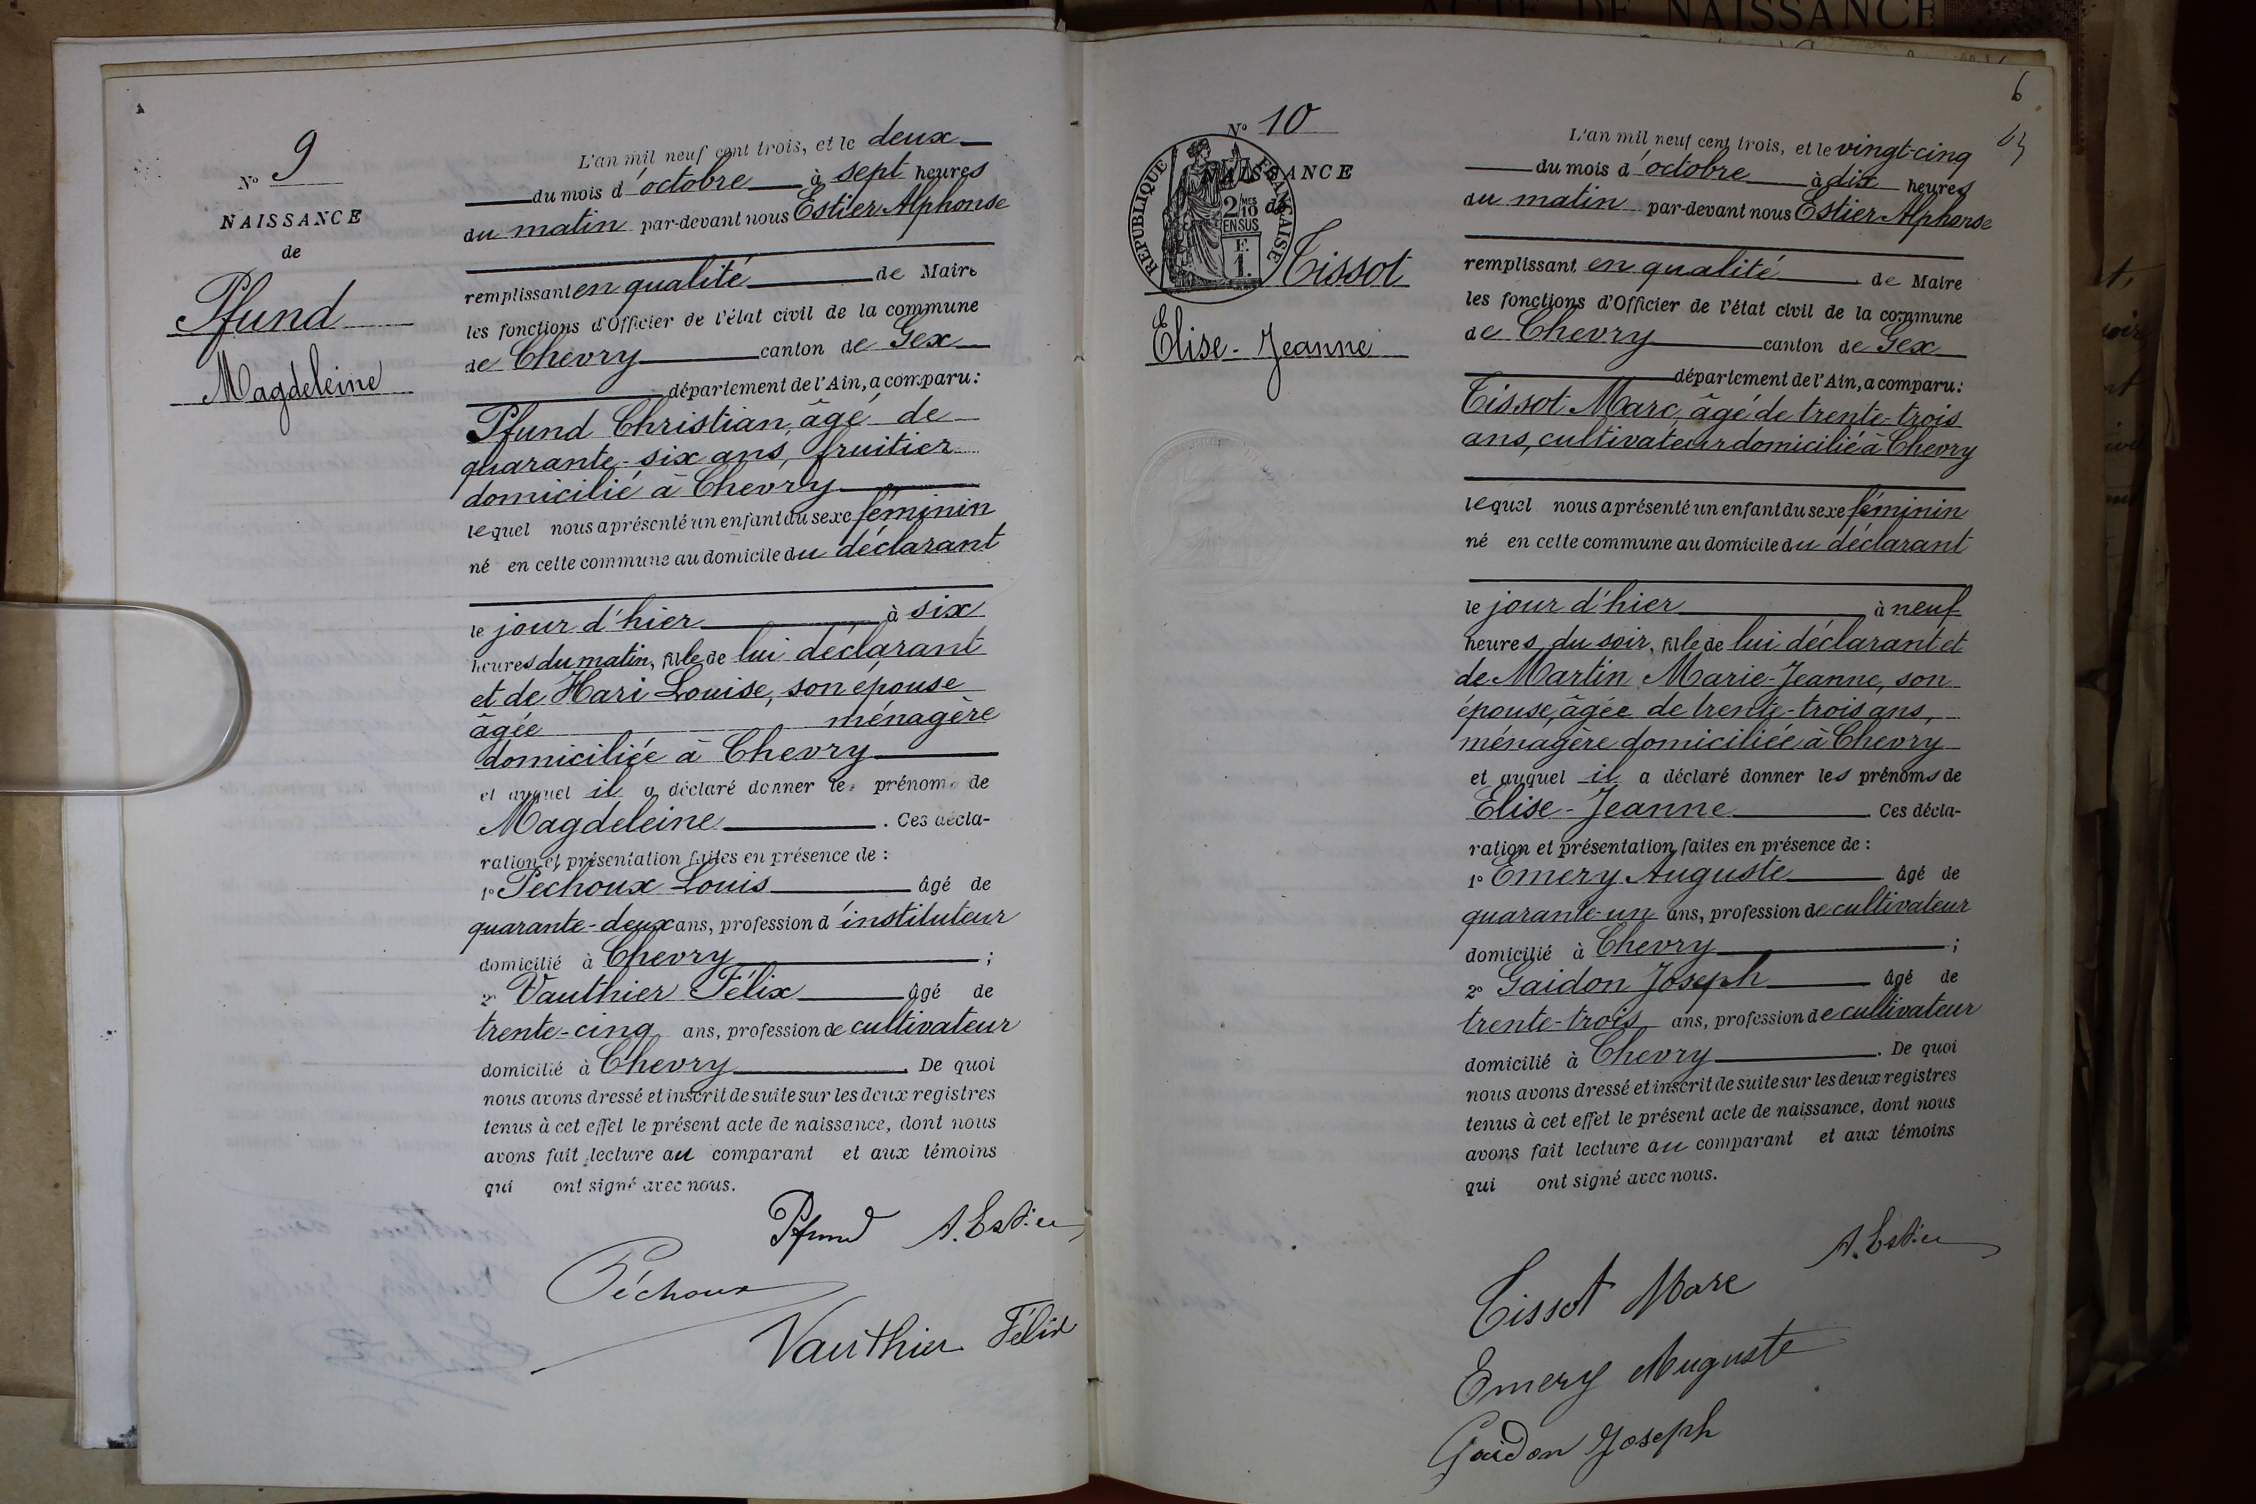 ACTE DE NAISSANCE
N° 9
NAISSANCE
de
Pfund
Magdeleine
L'an mil neuf cent trois, et le deux
du mois d'octobre à sept heures
du matin par-devant nous Estier Alphonse
remplissant en qualité de Maire
les fonctions d'Officier de l'état civil de la commune
de Chevry canton de Gex
département de l'Ain, a comparu:
Pfund Christian, âgé de
quarante-six ans, fruitier
domicilié à Chevry
lequel nous a présenté un enfant du sexe féminin
né en cette commune au domicile du déclarant
le jour d'hier à six
heures du matin, fille de lui déclarant
et de Hari Louise, son épouse
âgée ménagère
domiciliée à Chevry
et auquel il a déclaré donner le prénom de
Magdeleine . Ces décla-
ration et présentation faites en présence de :
1° Péchoux Louis âgé de
quarante-deux ans, profession d'instituteur
domicilié à Chevry ;
2° Vauthier Félix âgé de
trente-cinq ans, profession de cultivateur
domicilié à Chevry . De quoi
nous avons dressé et inscrit de suite sur les deux registres
tenus à cet effet le présent acte de naissance, dont nous
avons fait lecture au comparant et aux témoins
qui ont signé avec nous.
Pfund A. Estier
Péchoux
Vauthier Félix
6
N° 10
NAISSANCE
de
REPUBLIQUE FRANÇAISE
2/10 MES
EN SUS
F.
1.
Tissot
Élise-Jeanne
L'an mil neuf cent trois, et le vingt-cinq
du mois d'octobre à dix heures
du matin par-devant nous Estier Alphonse
remplissant en qualité de Maire
les fonctions d'Officier de l'état civil de la commune
de Chevry canton de Gex
département de l'Ain, a comparu:
Tissot Marc, âgé de trente-trois
ans, cultivateur domicilié à Chevry
lequel nous a présenté un enfant du sexe féminin
né en cette commune au domicile du déclarant
le jour d'hier à neuf
heures du soir, fille de lui déclarant et
de Martin Marie-Jeanne, son
épouse, âgée de trente-trois ans,
ménagère domiciliée à Chevry
et auquel il a déclaré donner les prénoms de
Élise-Jeanne . Ces décla-
ration et présentation faites en présence de :
1° Emery Auguste âgé de
quarante-un ans, profession de cultivateur
domicilié à Chevry ;
2° Gaidon Joseph âgé de
trente-trois ans, profession de cultivateur
domicilié à Chevry . De quoi
nous avons dressé et inscrit de suite sur les deux registres
tenus à cet effet le présent acte de naissance, dont nous
avons fait lecture au comparant et aux témoins
qui ont signé avec nous.
A. Estier
Tissot Marc
Emery Auguste
Gaidon Joseph